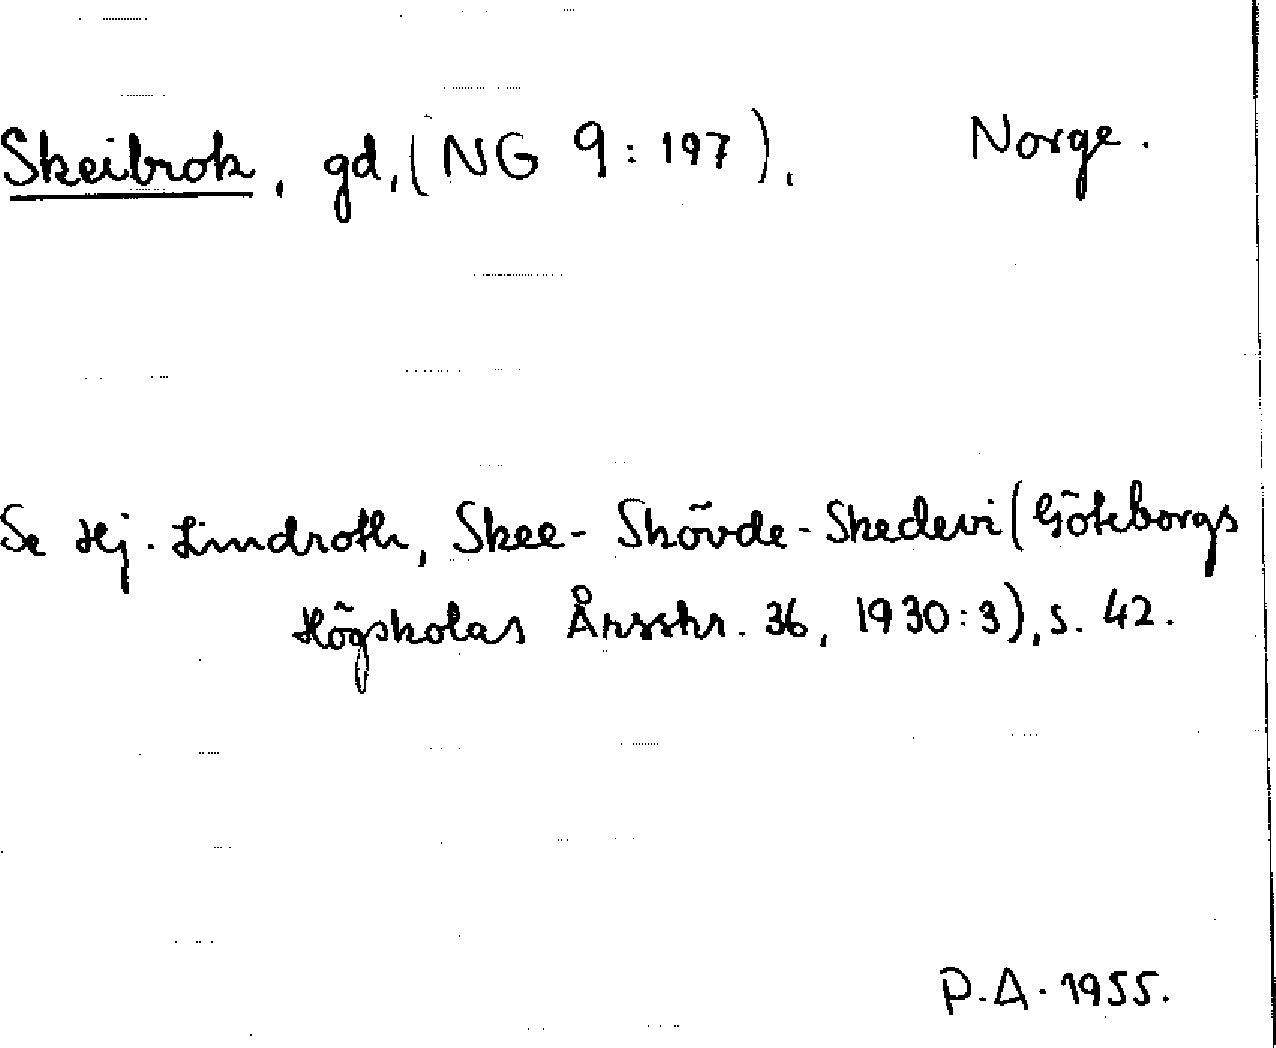 Skeibrok, gd, (NG 9:197). Norge.
Se Hj. Lindroth, Skee-Skövde-Skedevi (Göteborgs
Högskolas Årsskr. 36, 1930:3), s. 42.
P.A. 1955.